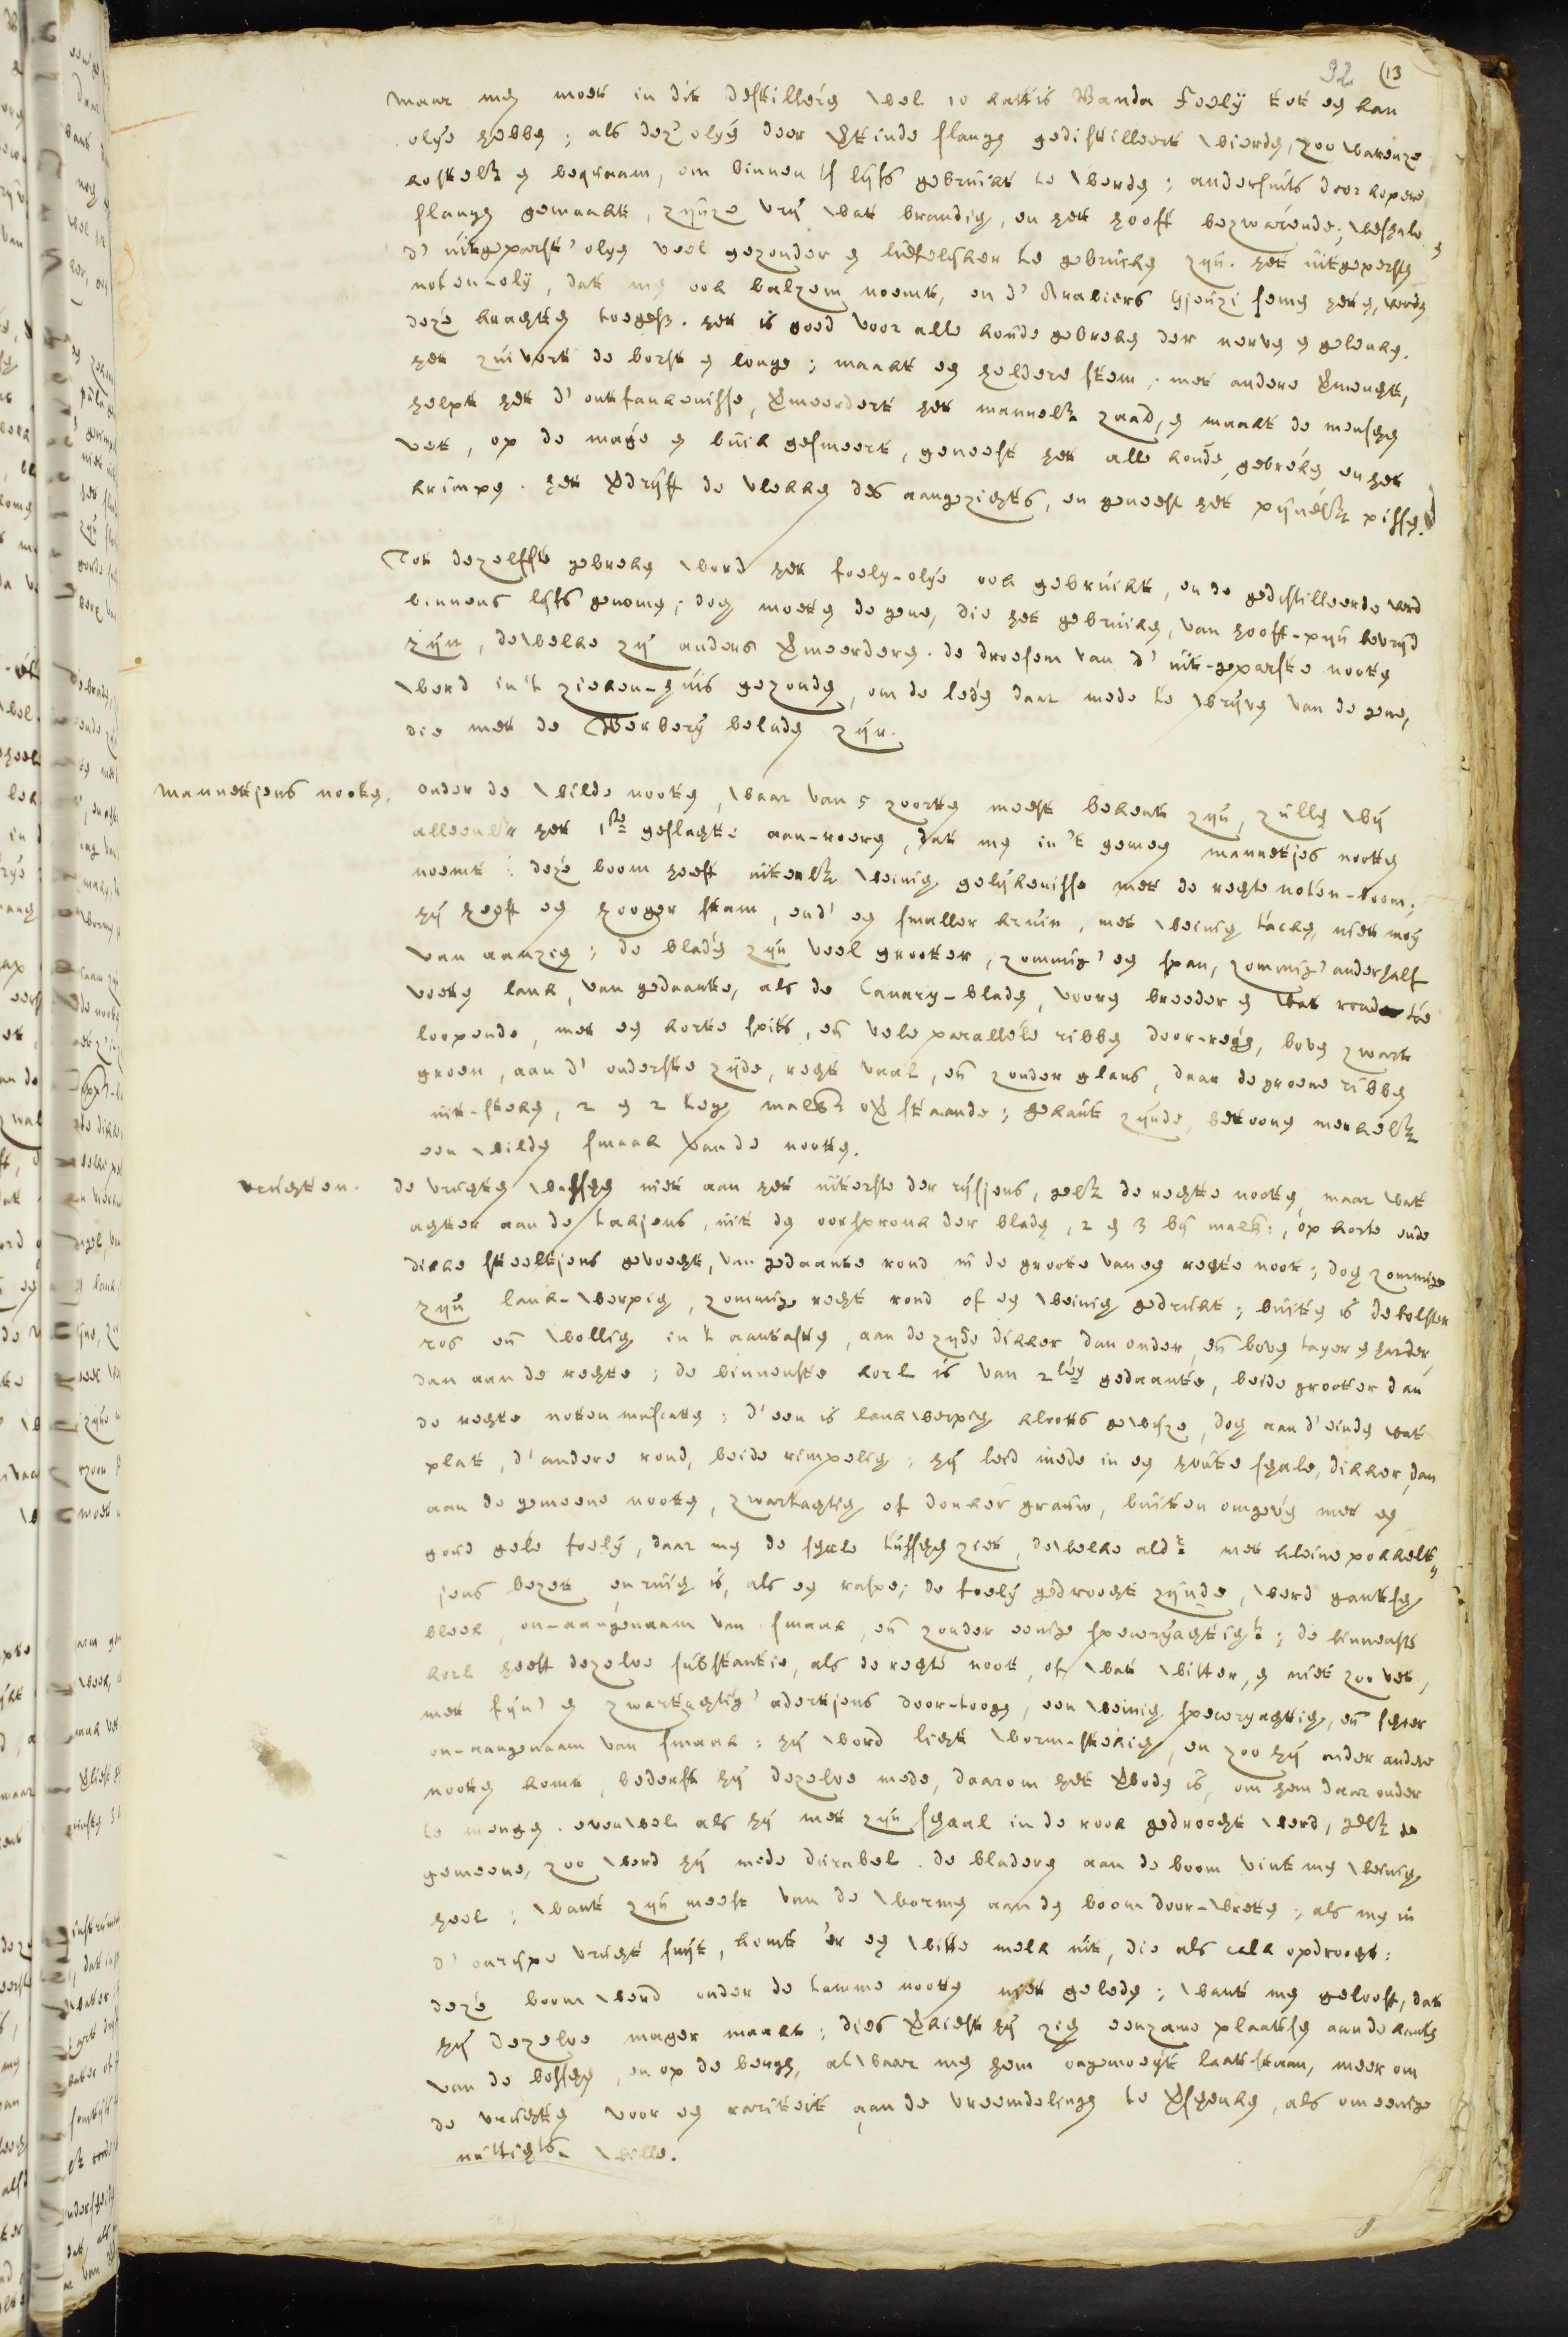 92 (13
maar men moet in dit destilleren wel 10 kattis Banda Foelij tot een kan
olije hebben; als dez' olijen door vertinde slangen gedistilleert wierden, zoo warenze
kostelijk en bequaam, om binnen 's lijfs gebruikt te werden; andersints door kopere
slangen gemaakt, zijnze vrij wat brandig, en het hooft bezwarende; weshalven
d' uitgeparst' olijen veel gezonder en lieffelijker te gebruiken zijn. het uitgeperste
noten-olij, dat men ook balzem noemt, en d' Arabiers heten, werden
deze krachten toegeschr. het is goed voor alle koude gebreken der nerven en gelenken.
het zuivert de borst en longe; maakt een heldere stem; met andere vermengt,
helpt het d' ontfankenisse, vermeerdert het mannelijk zaad, en maakt de menschen
vet, op de mage en buik gesmeert, geneest het alle koude gebreken en het
krimpen. het verdrijft de vlekken des aangezichts, en geneest het pijnelijk pissen.
Tot dezelffste gebreken word het foely-olije ook gebruikt, en de gedistilleerde werd
binnens lijfs genomen; doch moeten de gene, die het gebruiken, van hooft-pijn bevrijd
zijn, dewelke zij anders vermeerderen. de droesem van d' uit-geparste nooten
werd in 't zieken-huis gezonden, om de leden daar mede te wrijven van de gene,
die met de Berbery beladen zijn.
mannetjens nooten. onder de wilde nooten, waar van 5 zoorten meest bekent zijn, zullen wij
alleenlijk het 1ste geslachte aan-roeren, dat men in 't gemeen mannetjes nooten
noemt: deze boom heeft uiterlijk weinig gelijkenisse met de rechte noten-boom;
hij heeft een hooger stam, end' een smaller kruin, met weinig tacken, niet moij
van aanzien; de bladen zijn veel grooter, zommig' een span, zommig' anderhalf
voeten lank, van gedaante, als de Canary-bladen, vooren breeder en wat ronder toe
loopende, met een korte spits, en vele parallele ribben door-regen, boven zwart
groen, aan d' onderste zijde, recht vaal, en zonder glans, daar de groene ribben
uit-steken, 2 en 2 tegen malkr over staande; gekaut zijnde, betoonen merkelijk
een wilden smaak van de nooten.
vruchten. de vruchten wasschen niet aan het uiterste der rijsjens, gelijk de rechte nooten, maar wat
achter aan de takjens, uit den oorspronk der bladen, 2 en 3 bij malk:, op korte ende
dikke steeltjens gevoecht, van gedaante rond in de groote van een rechte noot; doch zommige
zijn lank-werpig, zommige recht rond of een weinig gedrukt; buiten is de bolster
ros en wollig in 't aantasten, aan de zijde dikker, dan onder, en boven taijer en harder,
dan aan de rechte; de binnenste korl is van 2 leij gedaante, beide grooter dan
de rechte noten muscaten; d' een is lankwerpig kloots gewijze, doch aan d' einden wat
plat, d' andere rond, beide rimpelig; hij leid mede in een houte schale, dikker, dan
aan de gemeene nooten, zwartachtig of donker grauw, buiten omgeven met een
goud gele foelij, daar men de schale tusschen ziet, dewelke aldr met kleine pokkelt„
jens bezet en ruig is, als een raspe; de foelij gedroocht zijnde, werd gantsch
bleek, on-aangenaam van smaak, en zonder eenige specerijachtight; de binnenste
korl heeft dezelve substantie, als de rechte noot, of wat witter, en niet zoo vet,
met fijn' en zwartachtig' adertjens door-toogen, een weinig specerijachtig, en schier
on-aangenaam van smaak: hij word licht worm-stekig, en zoo hij onder andere
nooten komt, bederft hij dezelve mede, daarom het verboden is, om hem daar onder
te mengen. evenwel als hij met zijn schaal in de rook gedroocht werd, gelijk de
gemeene, zoo werd hij mede durabel. de bladeren aan de boom vint men weinig
heel; want zijn meest van de wormen aan den boom door-vreten; als men in
d' onrijpe vrucht snijt, komt 'er een witte melk uit, die als calk opdroocht:
deze boom werd onder de tamme nooten niet geleden; want men gelooft, dat
hij dezelve mager maakt; dies verkiest hij zich eenzame plaatsen aan de kanten
van de bosschen, en op de bergen, alwaar men hem ongemoeijt laat-staan, meer om
de vruchten voor een rariteit aan de vreemdelingen te verschenken, als om eenige
nuttichts wille.